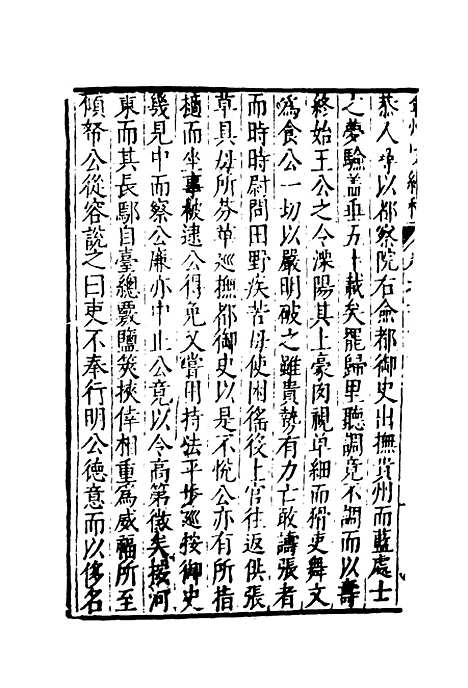 恭人尋以都察院右僉都御史出撫貴州而藍處士
之夢驗蓋垂五十載矣罷歸里聽調竟不調而以壽
終始王公之令溧陽其上豪肉視单細而猾吏舞文
為食公一切以嚴明破之雖貴勢有力亡敢譸張者
而時時尉問田野疾苦毋使困徭役上官往返供張
草具毋所芬華巡撫都御史以是不悅公亦有所指
樋而坐事被逮公得免又嘗用持法平忤巡按御史
幾見中而察公廉亦中止公竟以令高第徵矣按河
東而其長鄢自臺總覈鹽筴挾倖相重為威福所至
傾帑公從容說之曰吏不奉行明公德意而以侈名